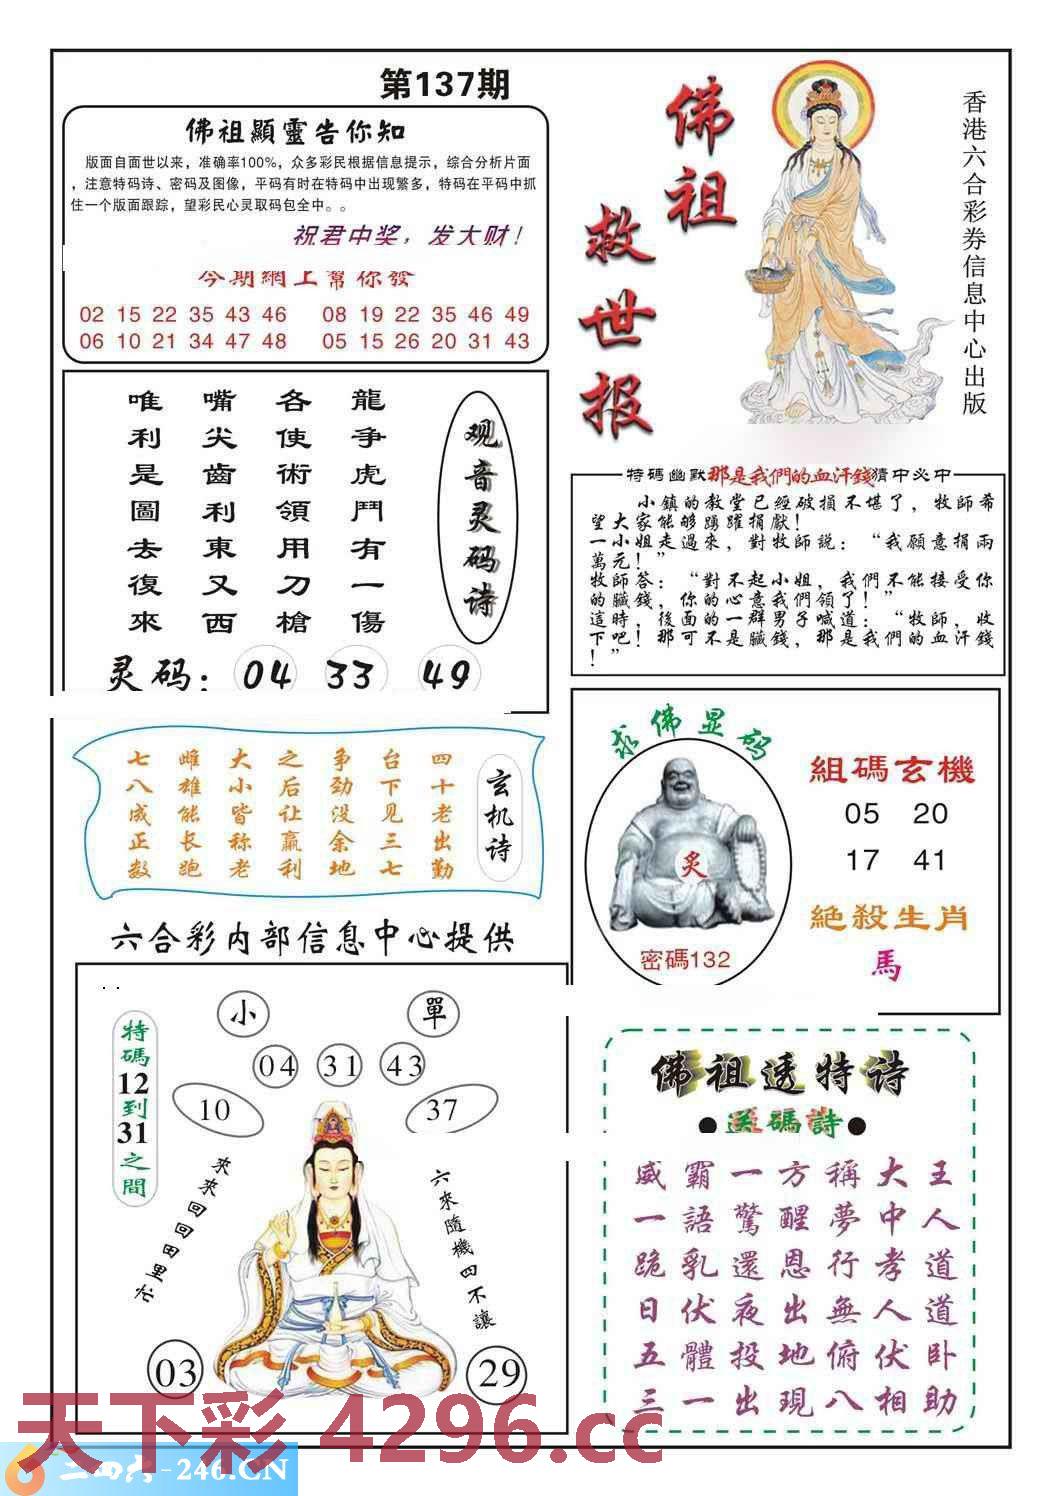 第137期
佛祖顯靈告你知
版面自面世以来，准确率100%，众多彩民根据信息提示，综合分析片面
，注意特码诗、密码及图像，平码有时在特码中出现繁多，特码在平码中抓
住一个版面跟踪，望彩民心灵取码包全中。。
祝君中奖，发大财！
今期網上幫你發
02 15 22 35 43 46 08 19 22 35 46 49
06 10 21 34 47 48 05 15 26 20 31 43
佛祖
救世报
香港六合彩券信息中心出版
观音灵码诗
龍争虎鬥有一傷
各使術領用刀槍
嘴尖齒利東又西
唯利是圖去復來
灵码：04 33 49
特碼幽默那是我們的血汗錢猜中必中
小鎮的教堂已經破損不堪了，牧師希
望大家能够踴躍捐獻！
一小姐走過來，對牧師説：“我願意捐兩
萬元！”
牧師答：“對不起小姐，我們不能接受你
的臟錢，你的心意我們領了！”
這時，後面的一群男子喊道：“牧師，收
下吧！那可不是臟錢，那是我們的血汗錢
！”
玄机诗
四十老出勤
台下见三七
争劲没余地
之后让赢利
大小皆称老
雌雄能长跑
七八成正数
求佛显码
炙
密碼132
組碼玄機
05 20
17 41
絶殺生肖
馬
六合彩内部信息中心提供
特碼12到31之間
小
單
04 31 43
10
37
來來回回田里忙
六來隨機四不讓
03
29
佛祖透特诗
●送碼詩●
威霸一方稱大王
一語驚醒夢中人
跪乳還恩行孝道
日伏夜出無人道
五體投地俯伏卧
三一出現八相助
天下彩 4296.cc
二四六-246.CN